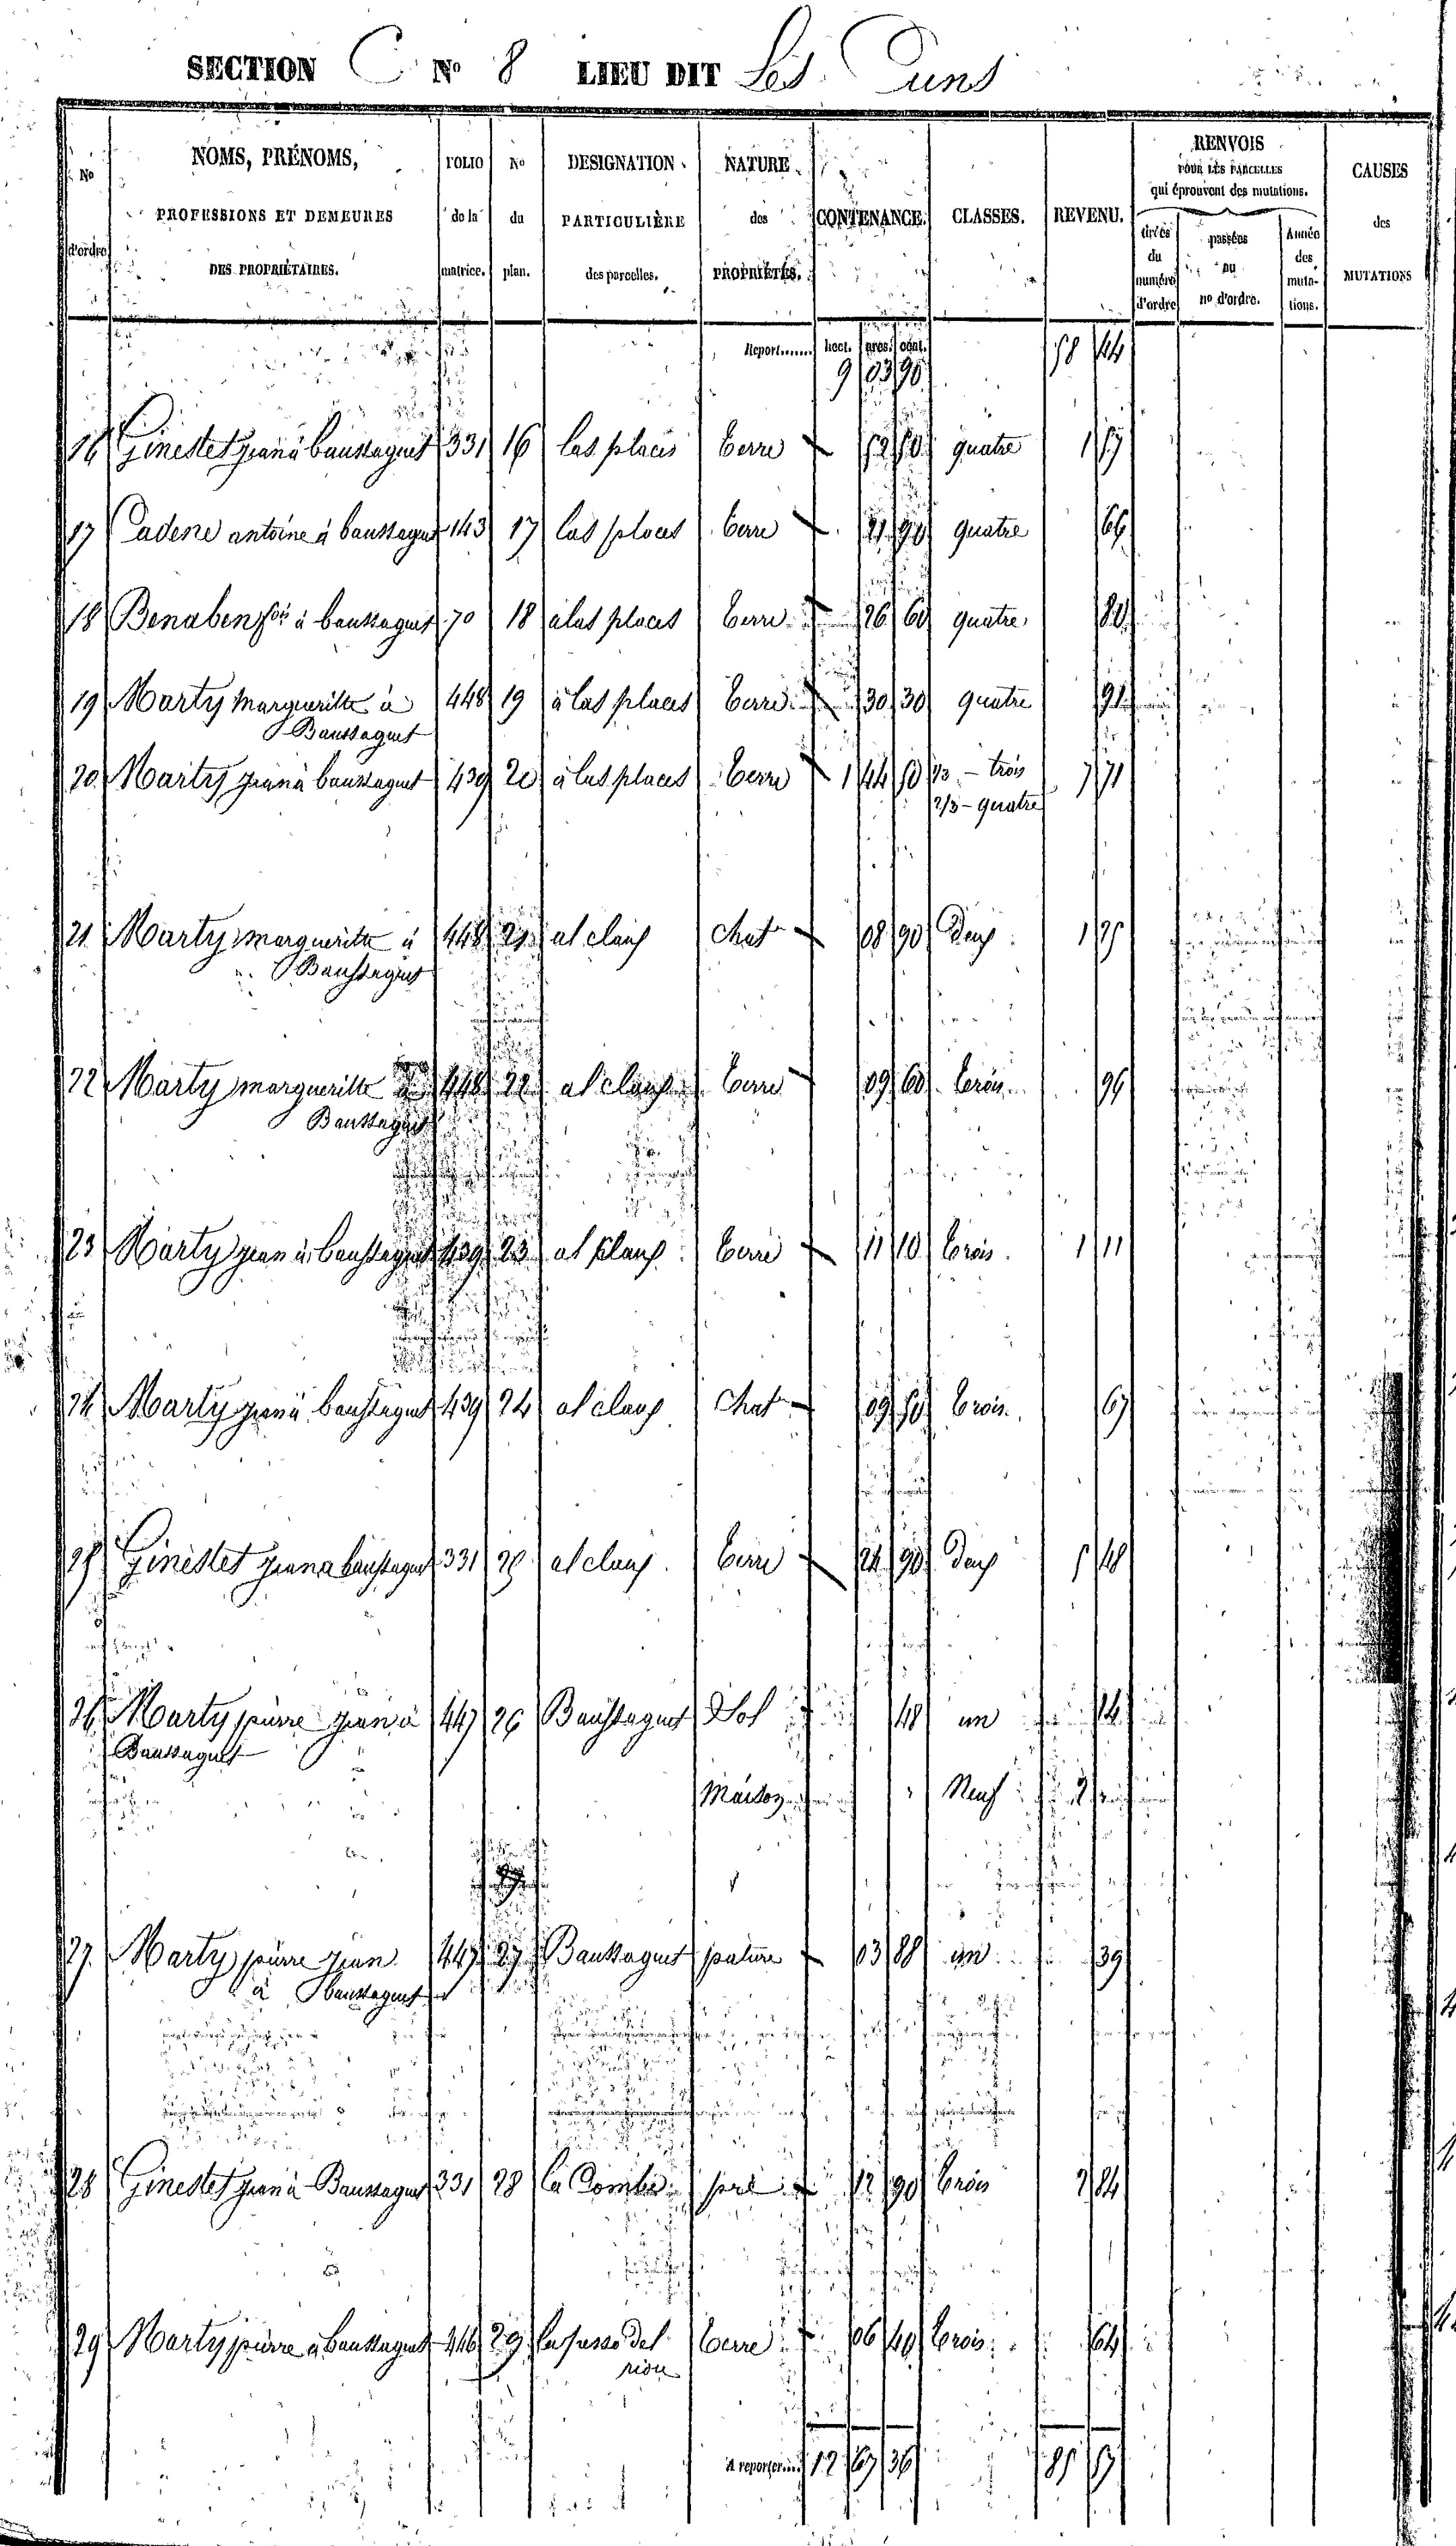 SECTION C N° 8 LIEU DIT Les Cuns
N° d'ordre | NOMS, PRÉNOMS, PROFESSIONS ET DEMEURES DES PROPRIÉTAIRES. | FOLIO de la matrice. | N° du plan. | DESIGNATION PARTICULIÈRE des parcelles. | NATURE des PROPRIÉTÉS. | CONTENANCE. | CLASSES. | REVENU. | RENVOIS POUR LES PARCELLES qui éprouvent des mutations. | tirées du numéro d'ordre | passées au no d'ordre. | Année des mutations. | CAUSES des MUTATIONS
Report...... hect. ares. cent.
9 03 90 58 44
16 Ginestet jean à baussaguet 331 16 las places terre 52 50 quatre 1 57
17 Cadene antoine à baussaguet 143 17 las places terre 21 90 quatre 66
18 Benaben fois à baussaguet 70 18 à las places terre 26 60 quatre 80
19 Marty margueritte à 448 19 à las places terre 30 30 quatre 91
Baussaguet
20 Marty jean à baussaguet 439 20 à las places terre 1 44 50 1/3 - trois 7 71
2/3 - quatre
21 Marty marguerite à 448 21 al claux chat 08 90 deux 1 25
Baussaguet
22 Marty marguerite à 448 22 al claux terre 09 60 trois 96
Baussaguet
23 Marty jean à baussaguet 439 23 al claux terre 11 10 trois 1 11
24 Marty jean à baussaguet 439 24 al claux chat 09 50 trois 67
25 Ginestet jean a baussaguet 331 25 al claux terre 24 90 deux 5 48
26 Marty pierre jean à 447 26 Baussaguet Sol 48 un 14
Baussaguet
Maison " Neuf 2
27 Marty pierre jean 447 27 Baussaguet pature 03 88 un 39
à baussaguet
28 Ginestet jean à Baussaguet 331 28 la Combe pré 12 90 trois 2 84
29 Marty pierre à baussaguet 446 29 la fasse del terre 06 40 trois 64
riou
A reporter.... 12 67 36 85 57